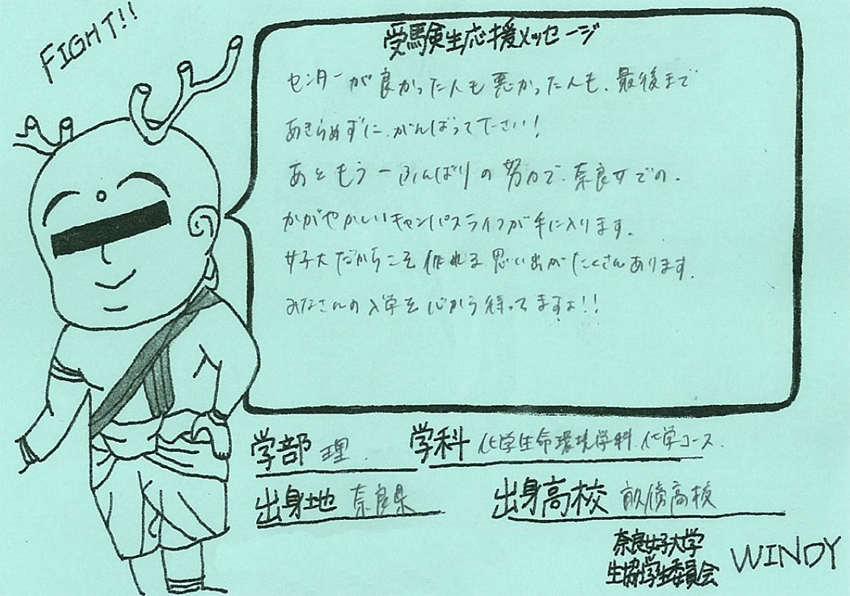 FIGHT!!
受験生応援メッセージ
センターが良かった人も悪かった人も、最後まで
あきらめずに、がんばって下さい!
あともう一ふんばりの努力で、奈良女での、
かがやかしいキャンパスライフが手に入ります。
女子大だからこそ作れる思い出がたくさんあります。
みなさんの入学を心から待ってますよ!!
学部 理. 学科 化学生命環境学科 化学コース.
出身地 奈良県 出身高校 畝傍高校
奈良女子大学
生協学生委員会 WINDY